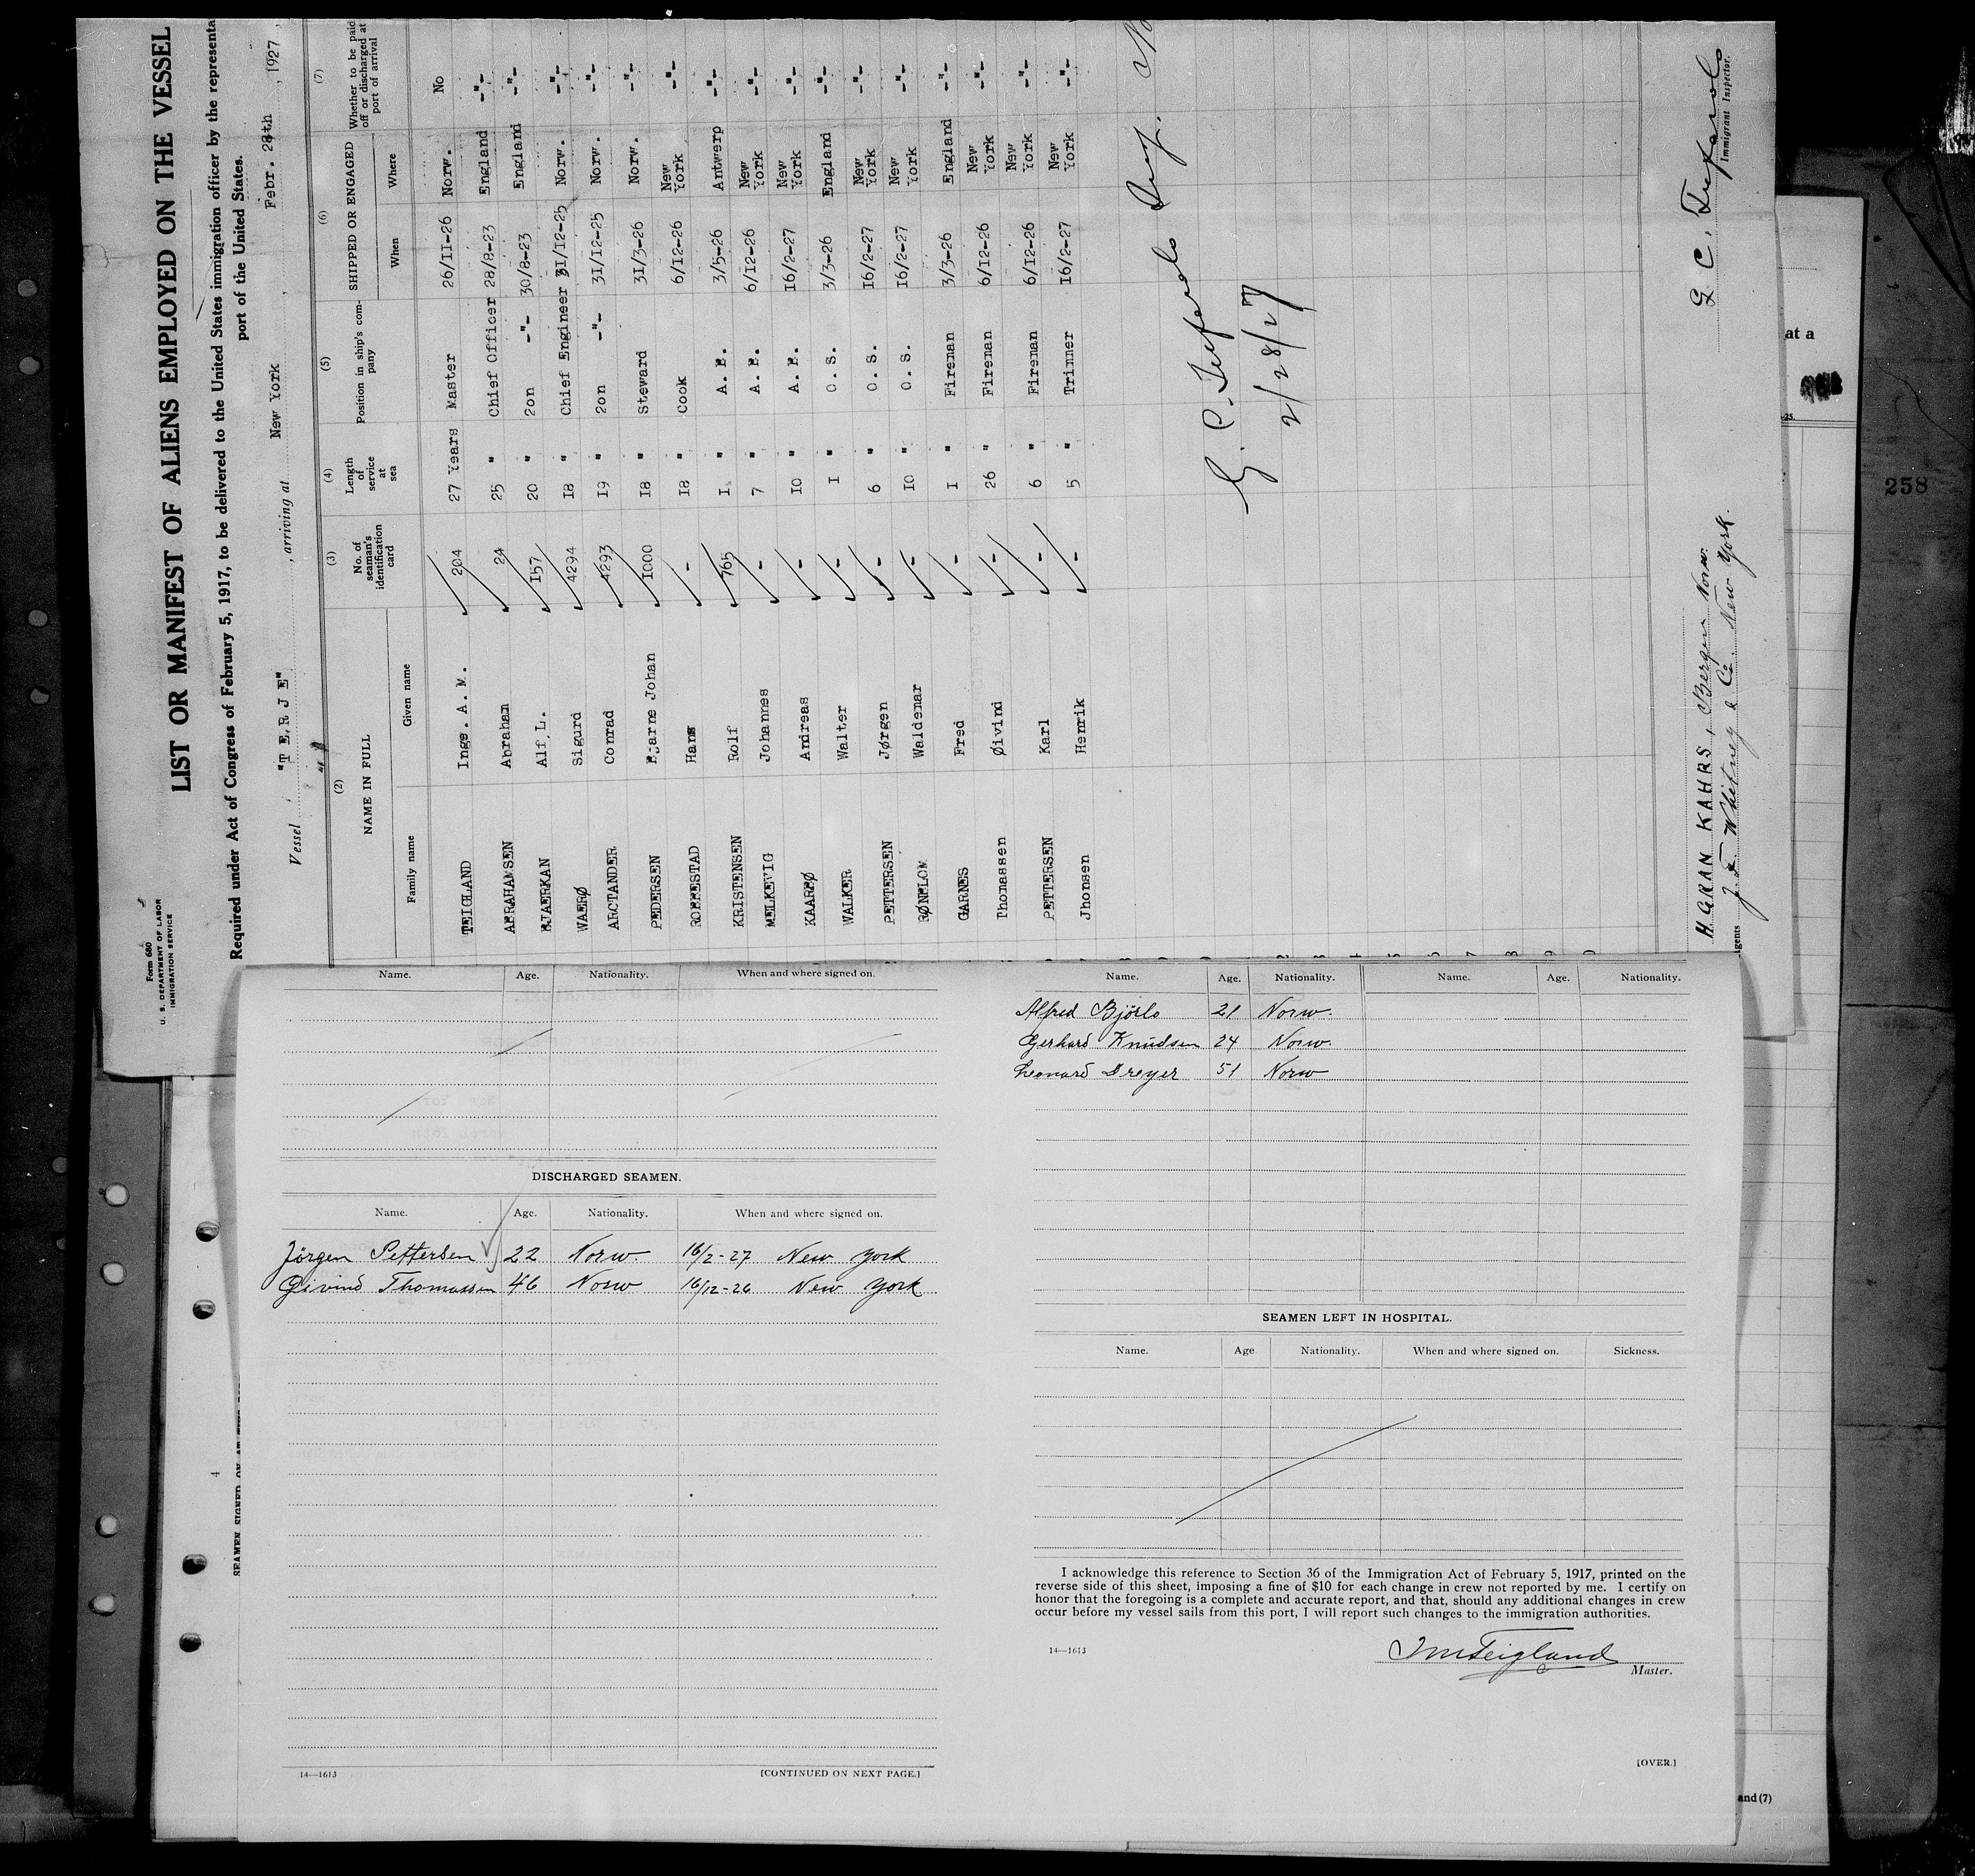 Form 680
U. S. DEPARTMENT OF LABOR
IMMIGRATION SERVICE
LIST OR MANIFEST OF ALIENS EMPLOYED ON THE VESSEL
Required under Act of Congress of February 5, 1917, to be delivered to the United States immigration officer by the representa
port of the United States.
Vessel "T E R J E" , arriving at New York , Febr. 28th , 1927
(2) (3) (4) (5) (6) (7)
NAME IN FULL No. of seaman's identification card Length of service at sea Position in ship's company SHIPPED OR ENGAGED Whether to be paid off or discharged at port of arrival
Family name Given name When Where
TEIGLAND Inge. A. M. 204 27 Years Master 26/11-26 Norw. No
ABRAHAMSEN Abrahan 24 25 " Chief Officer 28/8-23 England -"-
BJAERKAN Alf. L. 157 20 " 2on -"- 30/8-23 England -"-
WAERØ Sigurd 4294 18 " Chief Engineer 31/12-25 Norw. -"-
ARCTANDER Conrad 4293 19 " 2on -"- 31/12-25 Norw. -"-
PEDERSEN Bjarne Johan 1000 18 " Steward 31/3-26 Norw. -"-
ROBBESTAD Hans - 18 " Cook 6/12-26 New York -"-
KRISTENSEN Rolf 765 1 " A. B. 3/5-26 Antwerp -"-
MELKEVIG Johannes - 7 " A. B. 6/12-26 New York -"-
KAARBØ Andreas - 10 " A. B. 16/2-27 New York -"-
WALKER Walter - 1 " O. S. 3/3-26 England -"-
PETTERSEN Jørgen - 6 " O. S. 16/2-27 New York -"-
RØNBLOM Waldemar - 10 " O. S. 16/2-27 New York -"-
GARNES Fred - 1 " Fireman 3/3-26 England -"-
Thomassen Øivind - 26 " Fireman 6/12-26 New York -"-
PETTERSEN Karl - 6 " Fireman 6/12-26 New York -"-
Jhonsen Henrik - 5 " Trimmer 16/2-27 New York -"-
2/28/27
H GRAN KAHRS, Bergen Norw.
J. F. Whitney & Co. New York.
Immigrant Inspector.
at a
258
Name. Age. Nationality. When and where signed on.
DISCHARGED SEAMEN.
Name. Age. Nationality. When and where signed on.
Jörgen Pettersen 22 Norw. 16/2-27 New York
Öivind Thomassen 46 Norw 16/12-26 New York
14—1613 [CONTINUED ON NEXT PAGE.]
Name. Age. Nationality. Name. Age. Nationality.
Alfred Björlo 21 Norw.
Gerhard Knudsen 24 Norw.
Leonard Dreyer 51 Norw
SEAMEN LEFT IN HOSPITAL.
Name. Age Nationality. When and where signed on. Sickness.
I acknowledge this reference to Section 36 of the Immigration Act of February 5, 1917, printed on the
reverse side of this sheet, imposing a fine of $10 for each change in crew not reported by me. I certify on
honor that the foregoing is a complete and accurate report, and that, should any additional changes in crew
occur before my vessel sails from this port, I will report such changes to the immigration authorities.
14—1613
Teigland
Master.
[OVER.]
and (7)